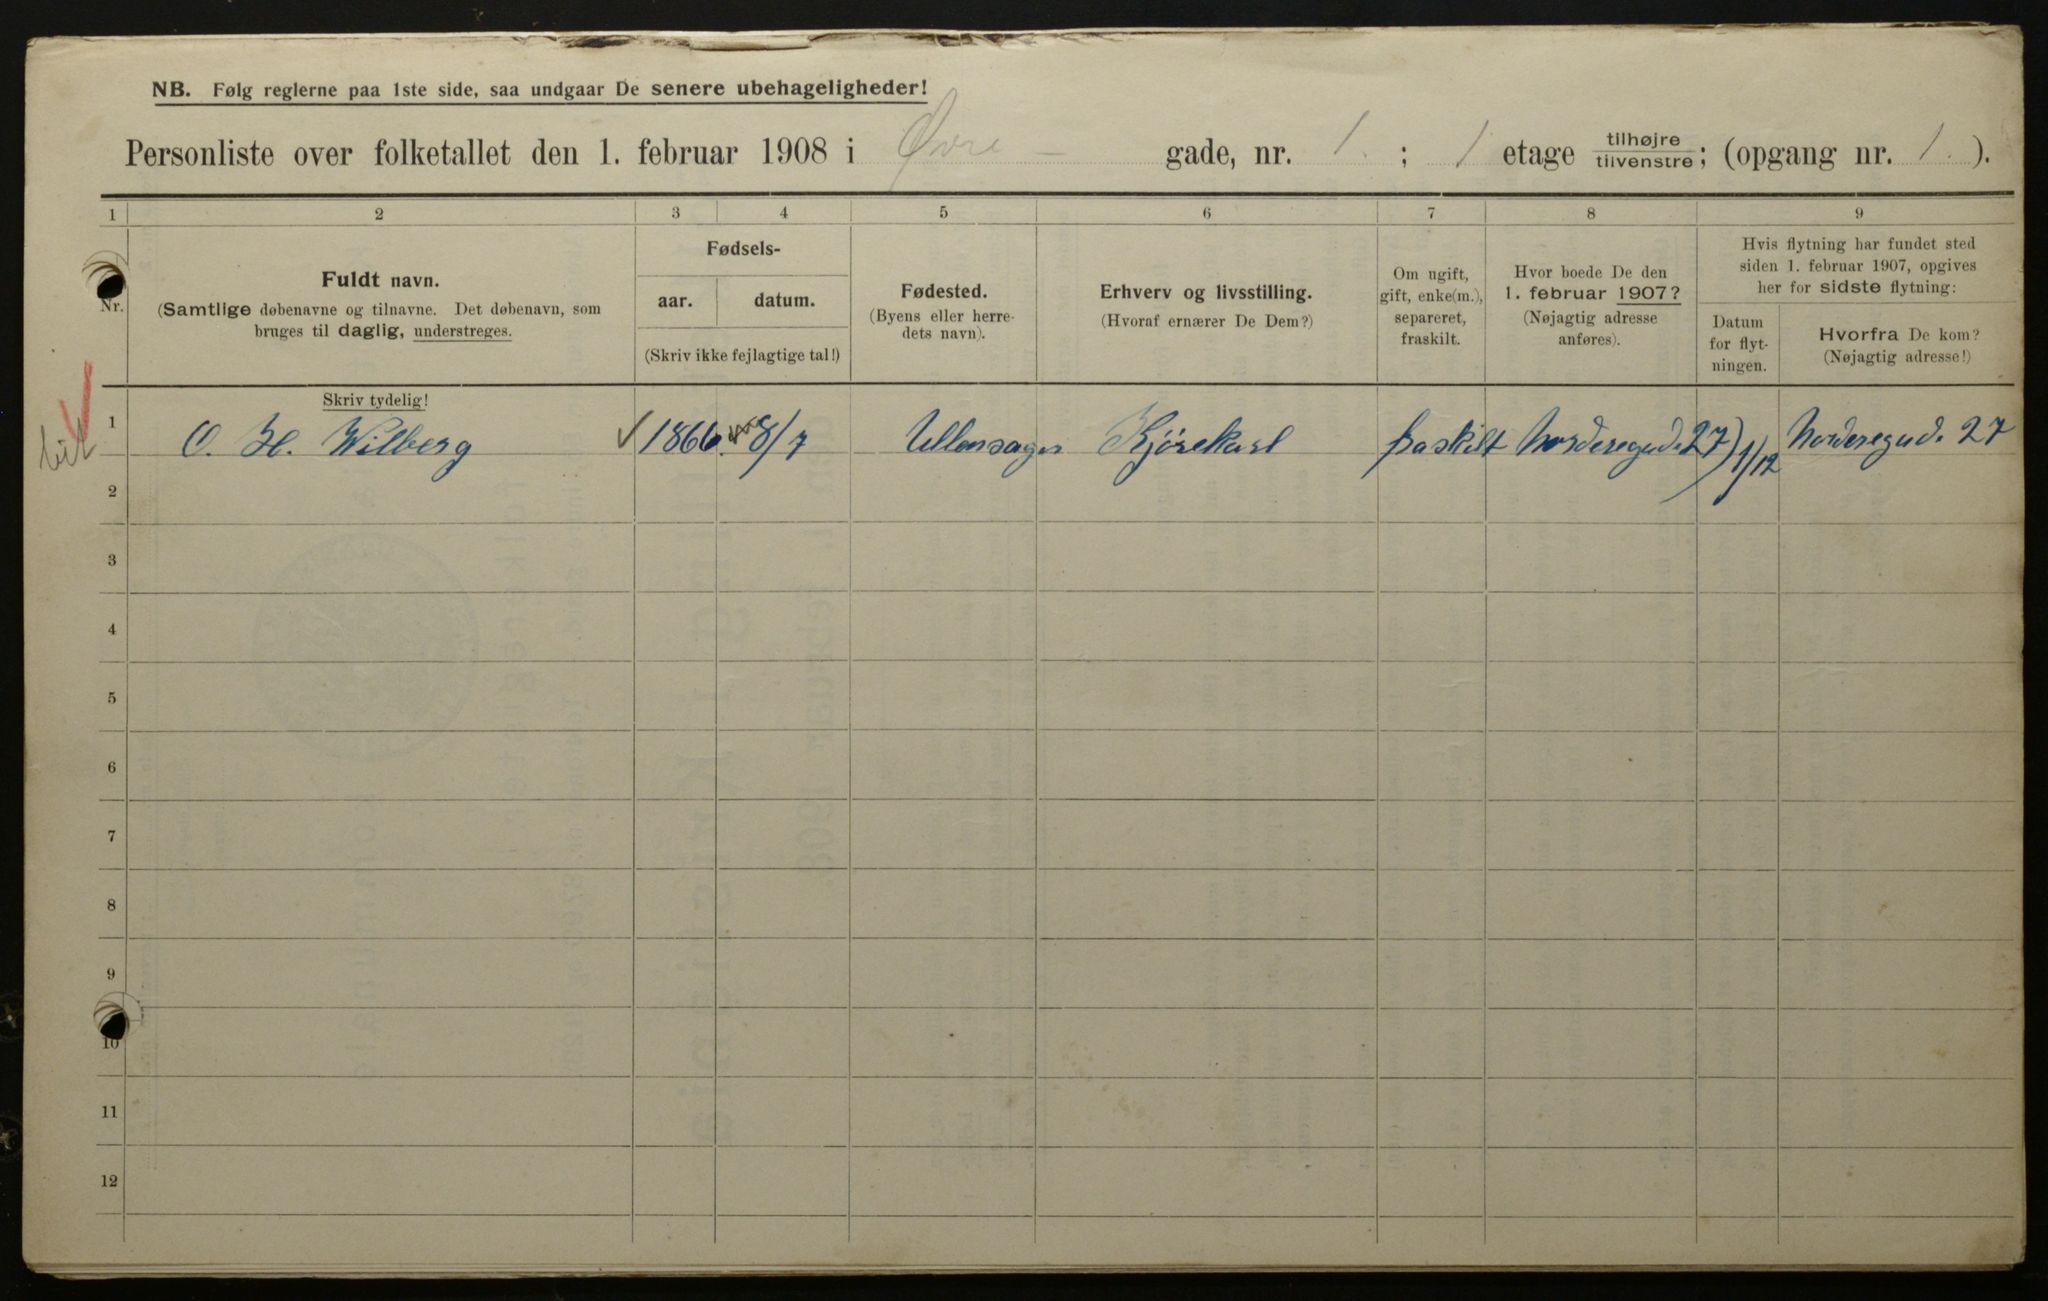 NB. Følg reglerne paa 1ste side, saa undgaar De senere ubehageligheder!
Personliste over folketallet den 1. februar 1908 i Øvre — gade, nr. 1. ; 1 etage tilhøjre tilvenstre; (opgang nr. 1. ).
1 2 3 4 5 6 7 8 9
Nr.
Fuldt navn.
(Samtlige døbenavne og tilnavne. Det døbenavn, som
bruges til daglig, understreges.
Fødsels-
aar. datum.
(Skriv ikke fejlagtige tal!)
Fødested.
(Byens eller herre-
dets navn).
Erhverv og livsstilling.
(Hvoraf ernærer De Dem?)
Om ugift,
gift, enke(m.),
separeret,
fraskilt.
Hvor boede De den
1. februar 1907?
(Nøjagtig adresse
anføres).
Hvis flytning har fundet sted
siden 1. februar 1907, opgives
her for sidste flytning:
Datum
for flyt-
ningen.
Hvorfra De kom?
(Nøjagtig adresse!)
Skriv tydelig!
1 O. H. Wilberg 1866. 8/7 Ullensager Kjørekarl fraskilt Norderegad. 27 1/12 Norderegad. 27
2
3
4
5
6
7
8
9
10
11
12